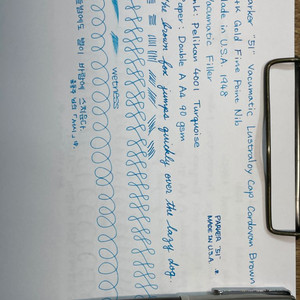 Parker "51" Vacumatic Lustraloy Cap Cordovan Brown
14K Gold Fine Point Nib
Made in USA 1948
Vacumatic Filler
Ink: Pelikan 4001 Turquoise
Paper: Double A A4 90 gsm
PARKER "51"
MADE IN U.S.A.
The brown fox jumps quickly over the lazy dog.
wetness
별이 바람에 스치운다.